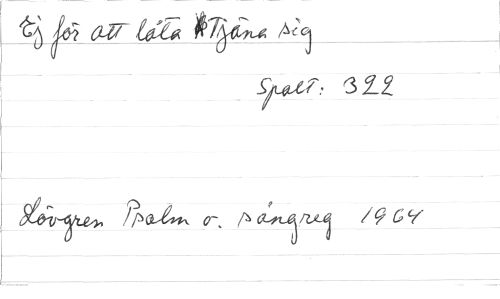 Ej för att låta tjäna sig
Spalt: 322
Lövgren Psalm o. sångreg 1964